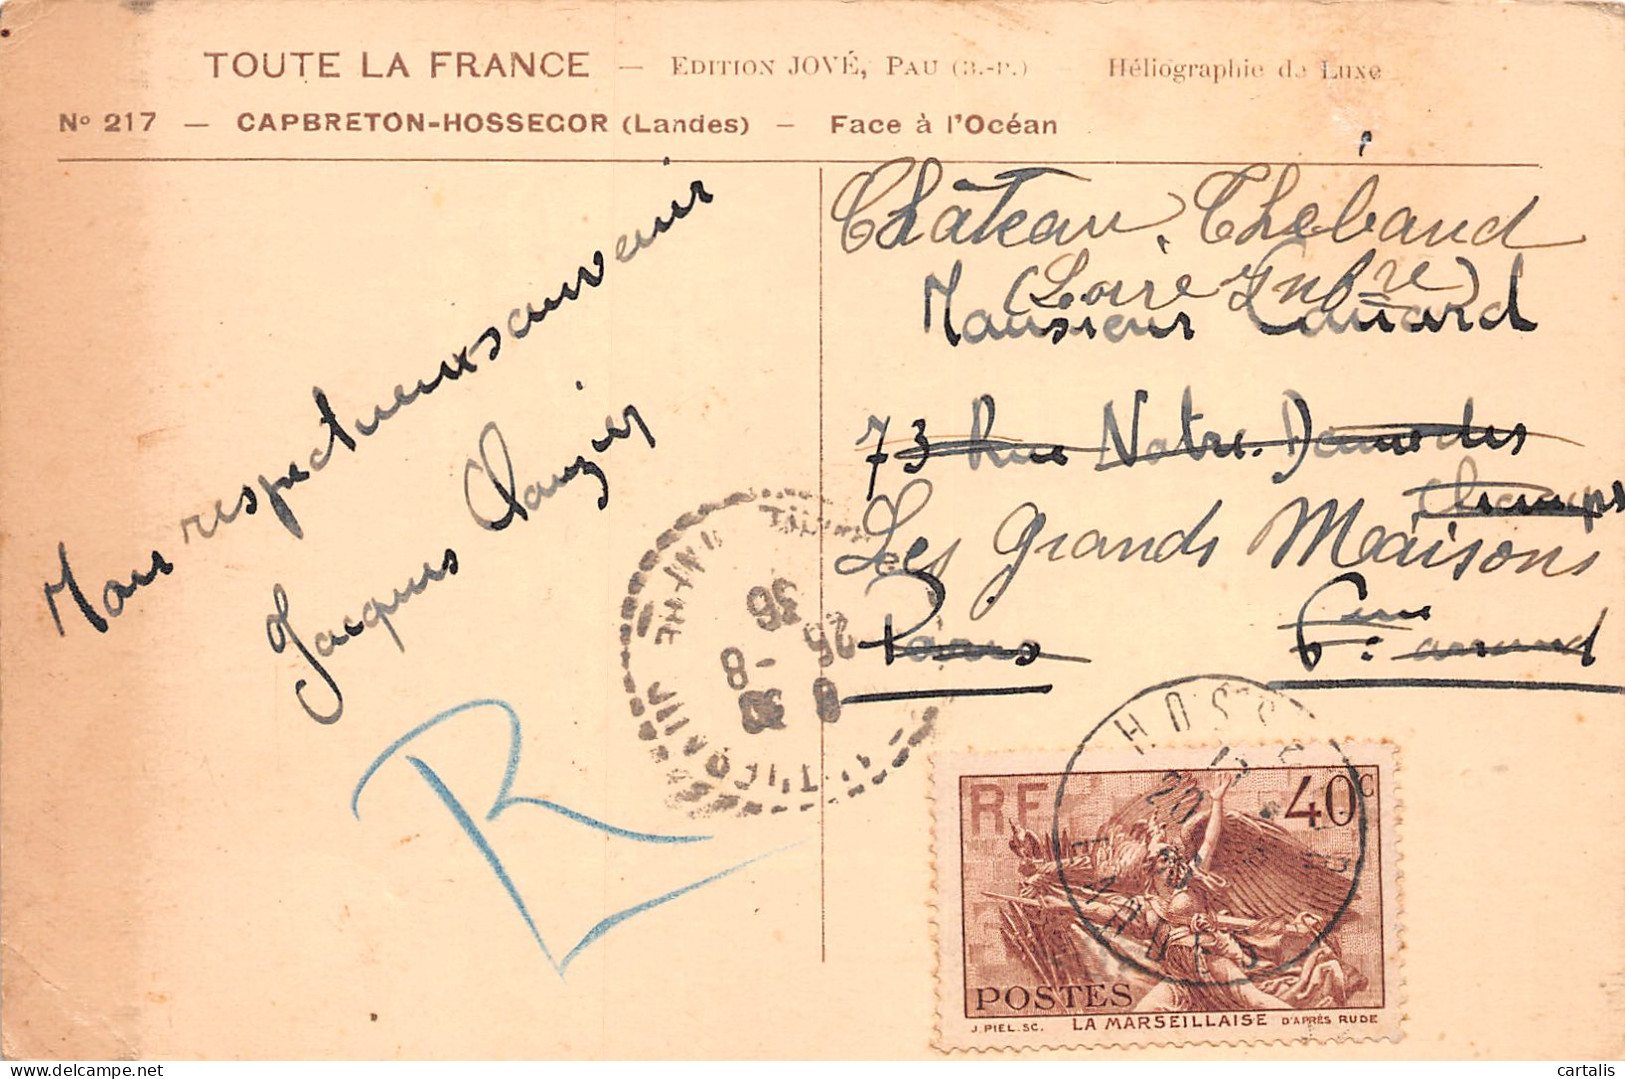 TOUTE LA FRANCE — EDITION JOVÉ, PAU (B.-P.) Héliographie de Luxe
Nº 217 — CAPBRETON-HOSSEGOR (Landes) — Face à l'Océan
Mon respectueux souvenir
Jacques
R
Château Thébaud
(Loire Infre)
Monsieur
73 Rue Notre-Dame des
Champs
Les grands Maisons
Paris 6eme arrond
26 -8
36
HOSSEGOR
20 - 8
LANDES
RF 40c
POSTES
J. PIEL. SC. LA MARSEILLAISE D'APRÈS RUDE
cartalis
delcampe.net